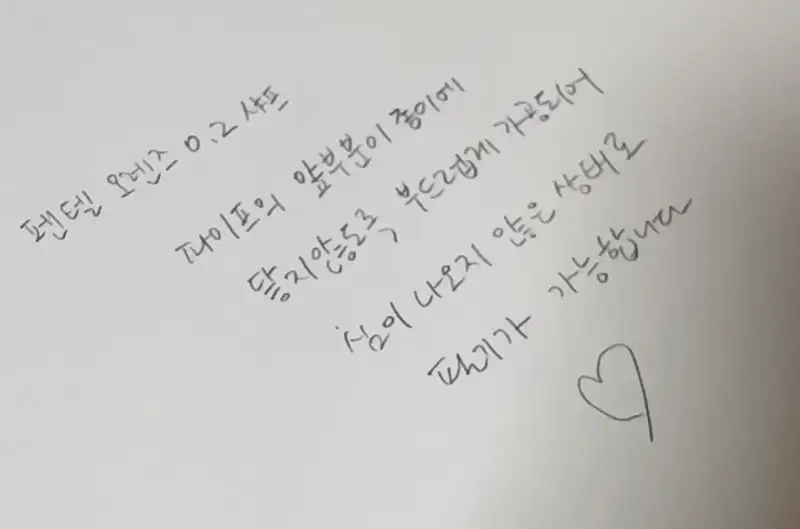 펜텔 오렌즈 0.2 샤프
파이프의 앞부분이 종이에
닿지않도록 부드럽게 가공되어
심이 나오지 않은 상태로
필기가 가능합니다